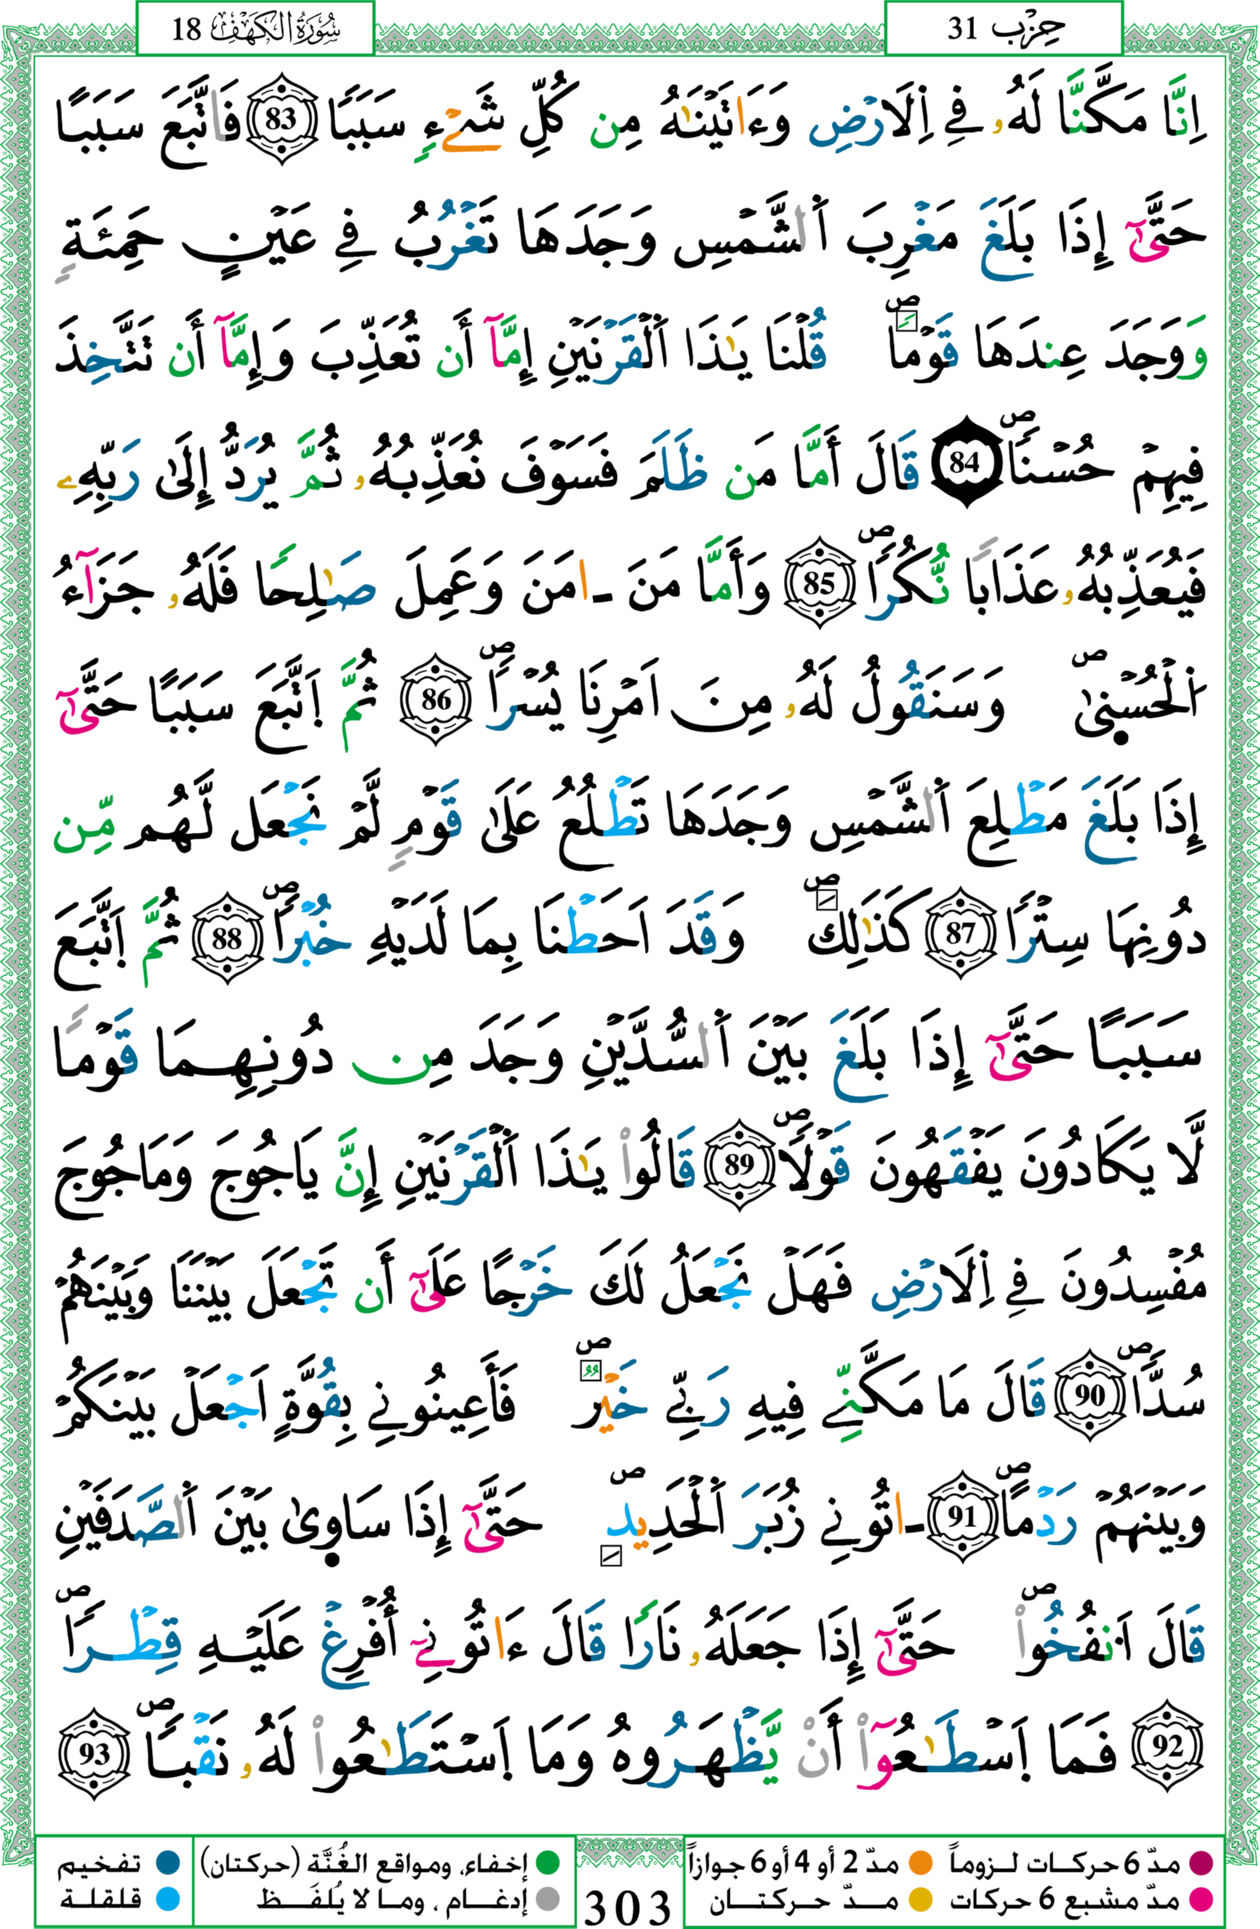 حِزْب 31
سُورَةُ الكَهْفِ 18
اِنَّا مَكَّنَّا لَهُۥ فِے اِ۬لَارْضِ وَءَاتَيْنَٰهُ مِن كُلِّ شَےْءٖ سَبَباٗ 83 فَاتَّبَعَ سَبَباً
حَتَّىٰٓ إِذَا بَلَغَ مَغْرِبَ اَ۬لشَّمْسِ وَجَدَهَا تَغْرُبُ فِے عَيْنٍ حَمِئَةٖ
وَوَجَدَ عِندَهَا قَوْماٗۖ قُلْنَا يَٰذَا اَ۬لْقَرْنَيْنِ إِمَّآ أَن تُعَذِّبَ وَإِمَّآ أَن تَتَّخِذَ
فِيهِمْ حُسْناٗۖ 84 قَالَ أَمَّا مَن ظَلَمَ فَسَوْفَ نُعَذِّبُهُۥ ثُمَّ يُرَدُّ إِلَىٰ رَبِّهِۦ
فَيُعَذِّبُهُۥ عَذَاباٗ نُّكُراٗۖ 85 وَأَمَّا مَنَ ـ\امَنَ وَعَمِلَ صَٰلِحاٗ فَلَهُۥ جَزَآءُ
اُ۬لْحُسْنىٰۖ وَسَنَقُولُ لَهُۥ مِنَ اَمْرِنَا يُسْراٗۖ 86 ثُمَّ اَ۪تَّبَعَ سَبَباً حَتَّىٰٓ
إِذَا بَلَغَ مَطْلِعَ اَ۬لشَّمْسِ وَجَدَهَا تَطْلُعُ عَلَىٰ قَوْمٖ لَّمْ نَجْعَل لَّهُم مِّن
دُونِهَا سِتْراٗ 87 كَذَٰلِكَۖ وَقَدَ اَحَطْنَا بِمَا لَدَيْهِ خُبْراٗۖ 88 ثُمَّ اَ۪تَّبَعَ
سَبَباً حَتَّىٰٓ إِذَا بَلَغَ بَيْنَ اَ۬لسُّدَّيْنِ وَجَدَ مِن دُونِهِمَا قَوْماٗ
لَّا يَكَادُونَ يَفْقَهُونَ قَوْلاٗۖ 89 قَالُواْ يَٰذَا اَ۬لْقَرْنَيْنِ إِنَّ يَاجُوجَ وَمَاجُوجَ
مُفْسِدُونَ فِے اِ۬لَارْضِ فَهَلْ نَجْعَلُ لَكَ خَرْجاً عَلَىٰٓ أَن تَجْعَلَ بَيْنَنَا وَبَيْنَهُمْ
سُدّاٗۖ 90 قَالَ مَا مَكَّنِّے فِيهِ رَبِّے خَيْرٞۖ فَأَعِينُونِے بِقُوَّةٍ اَجْعَلْ بَيْنَكُمْ
وَبَيْنَهُمْ رَدْماًۖ 91 ـ\اتُونِے زُبَرَ اَ۬لْحَدِيدِۖ حَتَّىٰٓ إِذَا سَاوىٰ بَيْنَ اَ۬لصَّدَفَيْنِ
قَالَ اَ۟نفُخُواْۖ حَتَّىٰٓ إِذَا جَعَلَهُۥ نَاراٗ قَالَ ءَاتُونِےٓ أُفْرِغْ عَلَيْهِ قِطْراٗۖ
92 فَمَا اَ۪سْطَٰعُوٓاْ أَنْ يَّظْهَرُوهُ وَمَا اَ۪سْتَطَٰعُواْ لَهُۥ نَقْباٗۖ 93
مدّ 6 حركات لـزومـاً مدّ 2 أو 4 أو 6 جوازاً
مدّ مشبع 6 حركات مـدّ حـركـتـان
303
إخفاء، ومواقع الغُنَّة (حركتان) تفخيم
إدغـام ، ومـا لا يُلفَـظ قـلـقـلـة